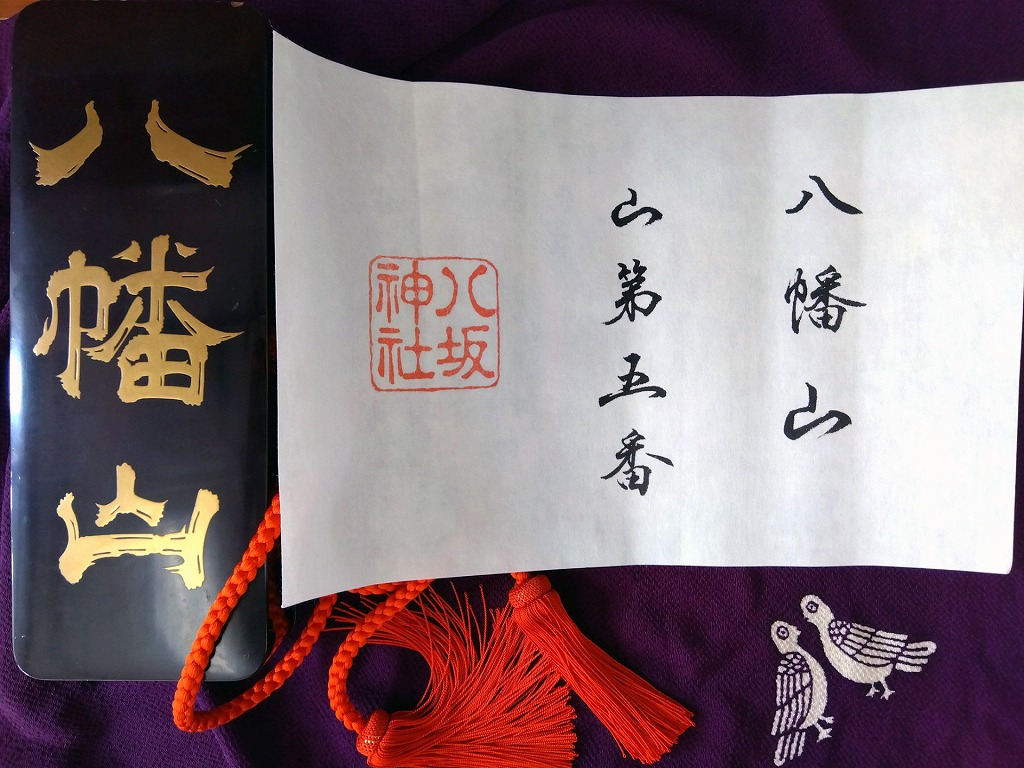 八幡山
八幡山
山第五番
八坂
神社